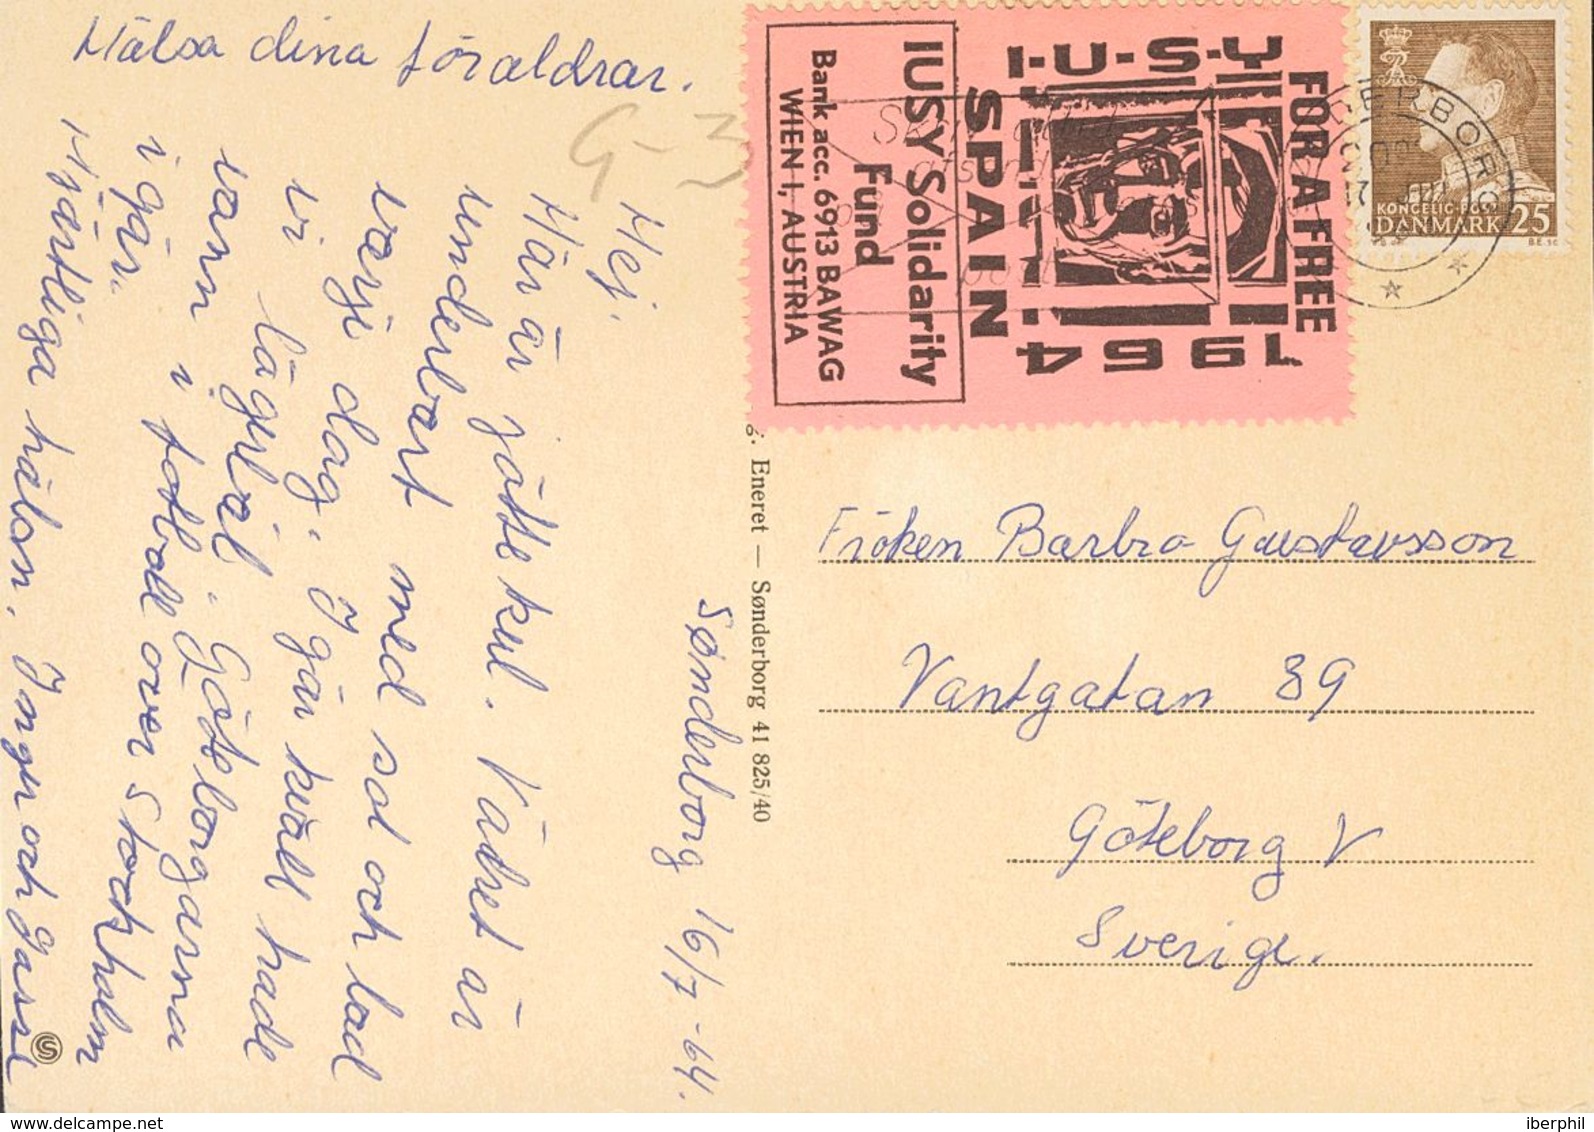 Hälsa dina föräldrar.
G-3
Sønderborg 16/7-64.
Hej.
Här är jättekul. Vädret är
underbart med sol och bad
varje dag. I går kväll hade
vi lägerbål. Göteborgarna
vann i fotboll över Stockholm
i går.
Hjärtliga hälsn. Inger och Lasse
Eneret — Sønderborg 41 825/40
I·U·S·Y
FOR A FREE
SPAIN
1964
IUSY Solidarity
Fund
Bank acc. 6913 BAWAG
WIEN I, AUSTRIA
KONGELIG POST
DANMARK 25
Fröken Barbro Gustavsson
Vantgatan 89
Göteborg V
Sverige.
iberphil
www.delcampe.net